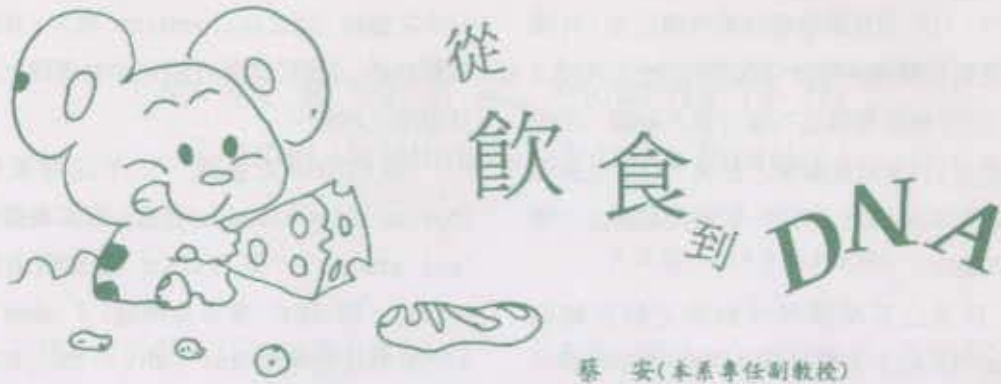 從飲食到DNA
蔡 安(本系專任副教授)